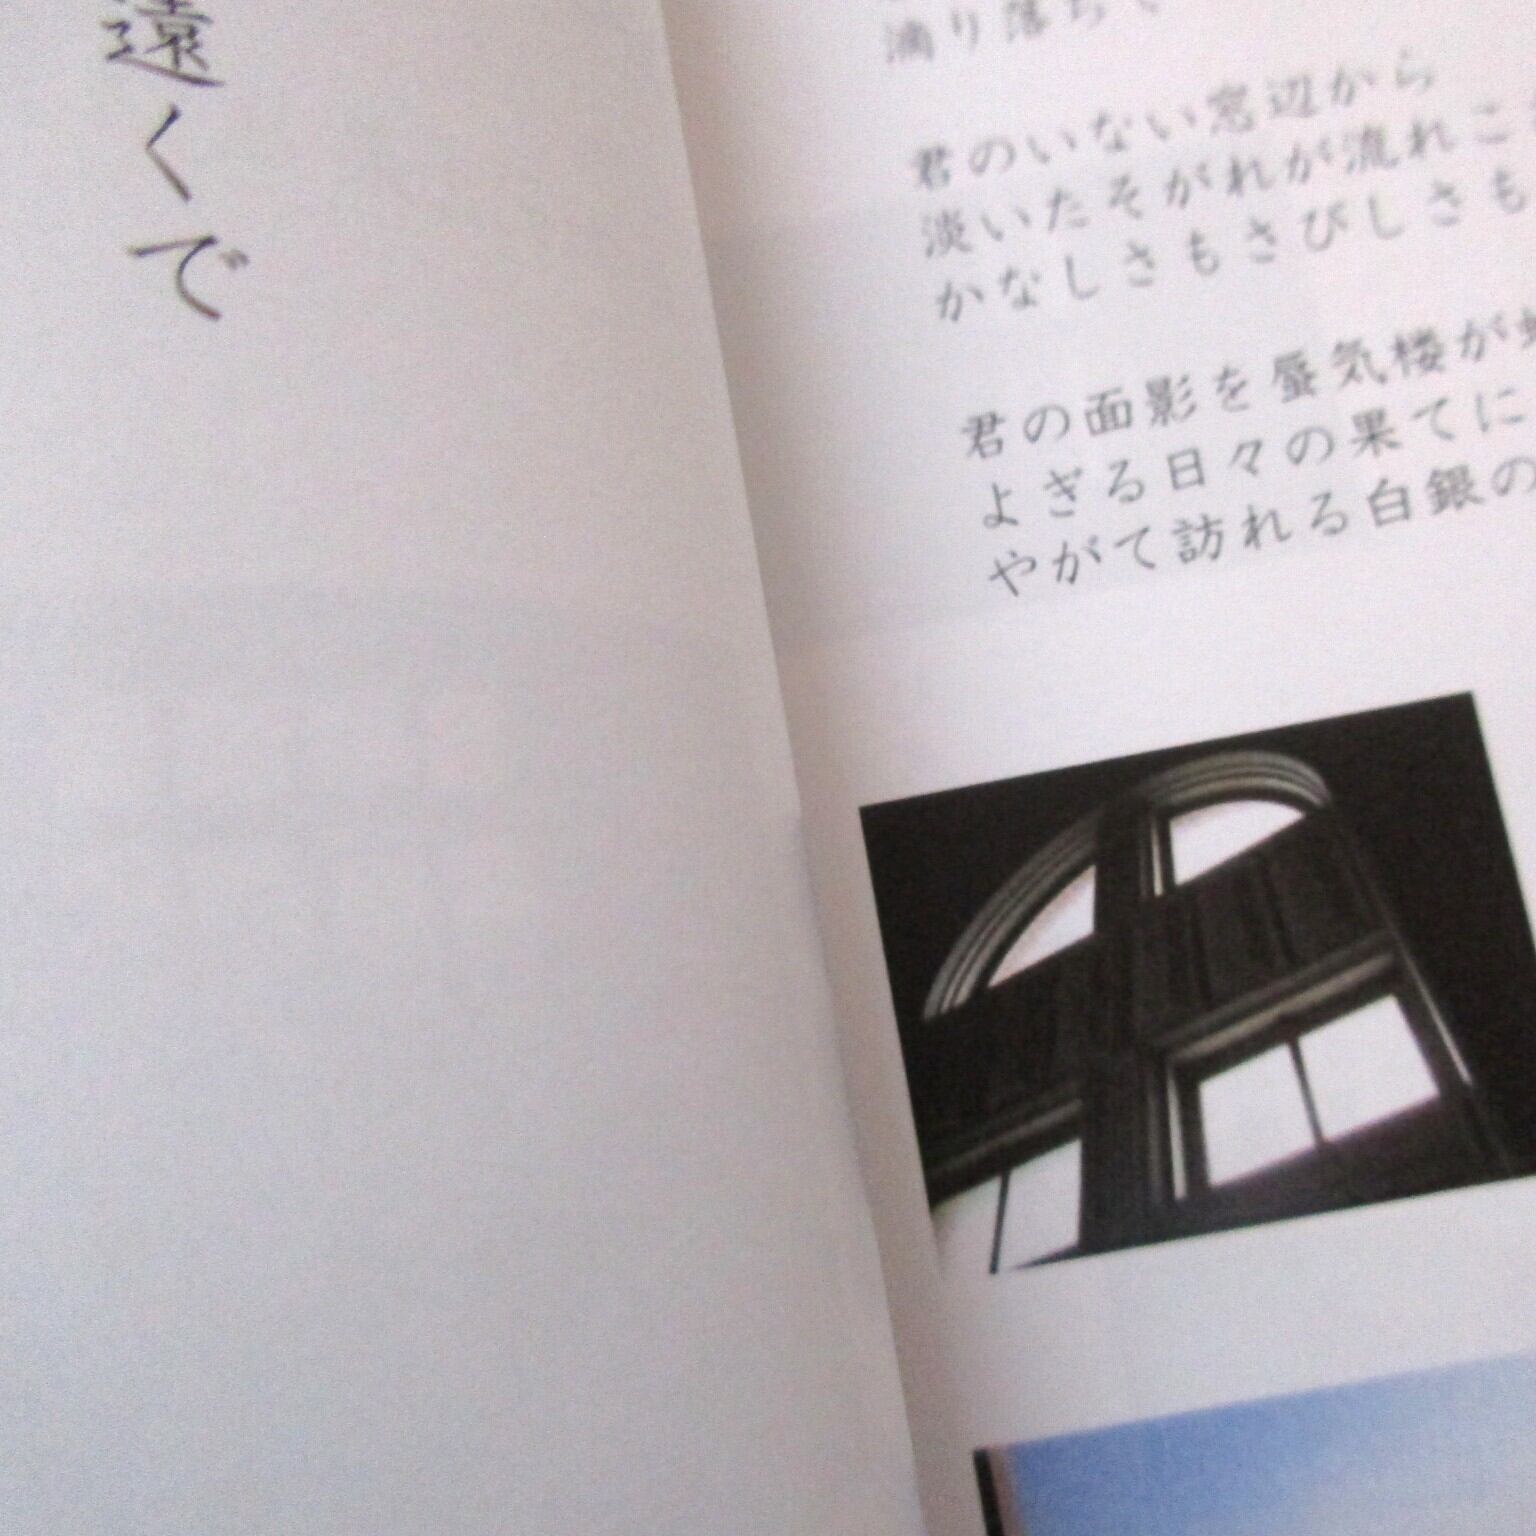 遠くで
滴り落ちて
君のいない窓辺から
淡いたそがれが流れこ
かなしさもさびしさも
君の面影を蜃気楼が
よぎる日々の果てに
やがて訪れる白銀の